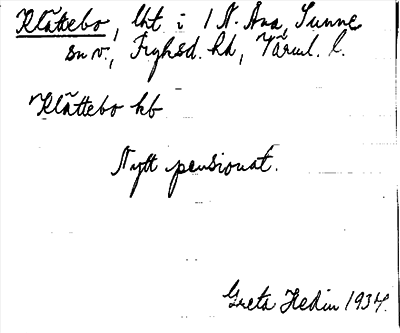 Klättebo, lht. i 1 N. Åna, Sunne
sn v., Fryksd. hd, Värml. l.
Klättebo kb
Nytt pensionat.
Greta Hedin 1934.